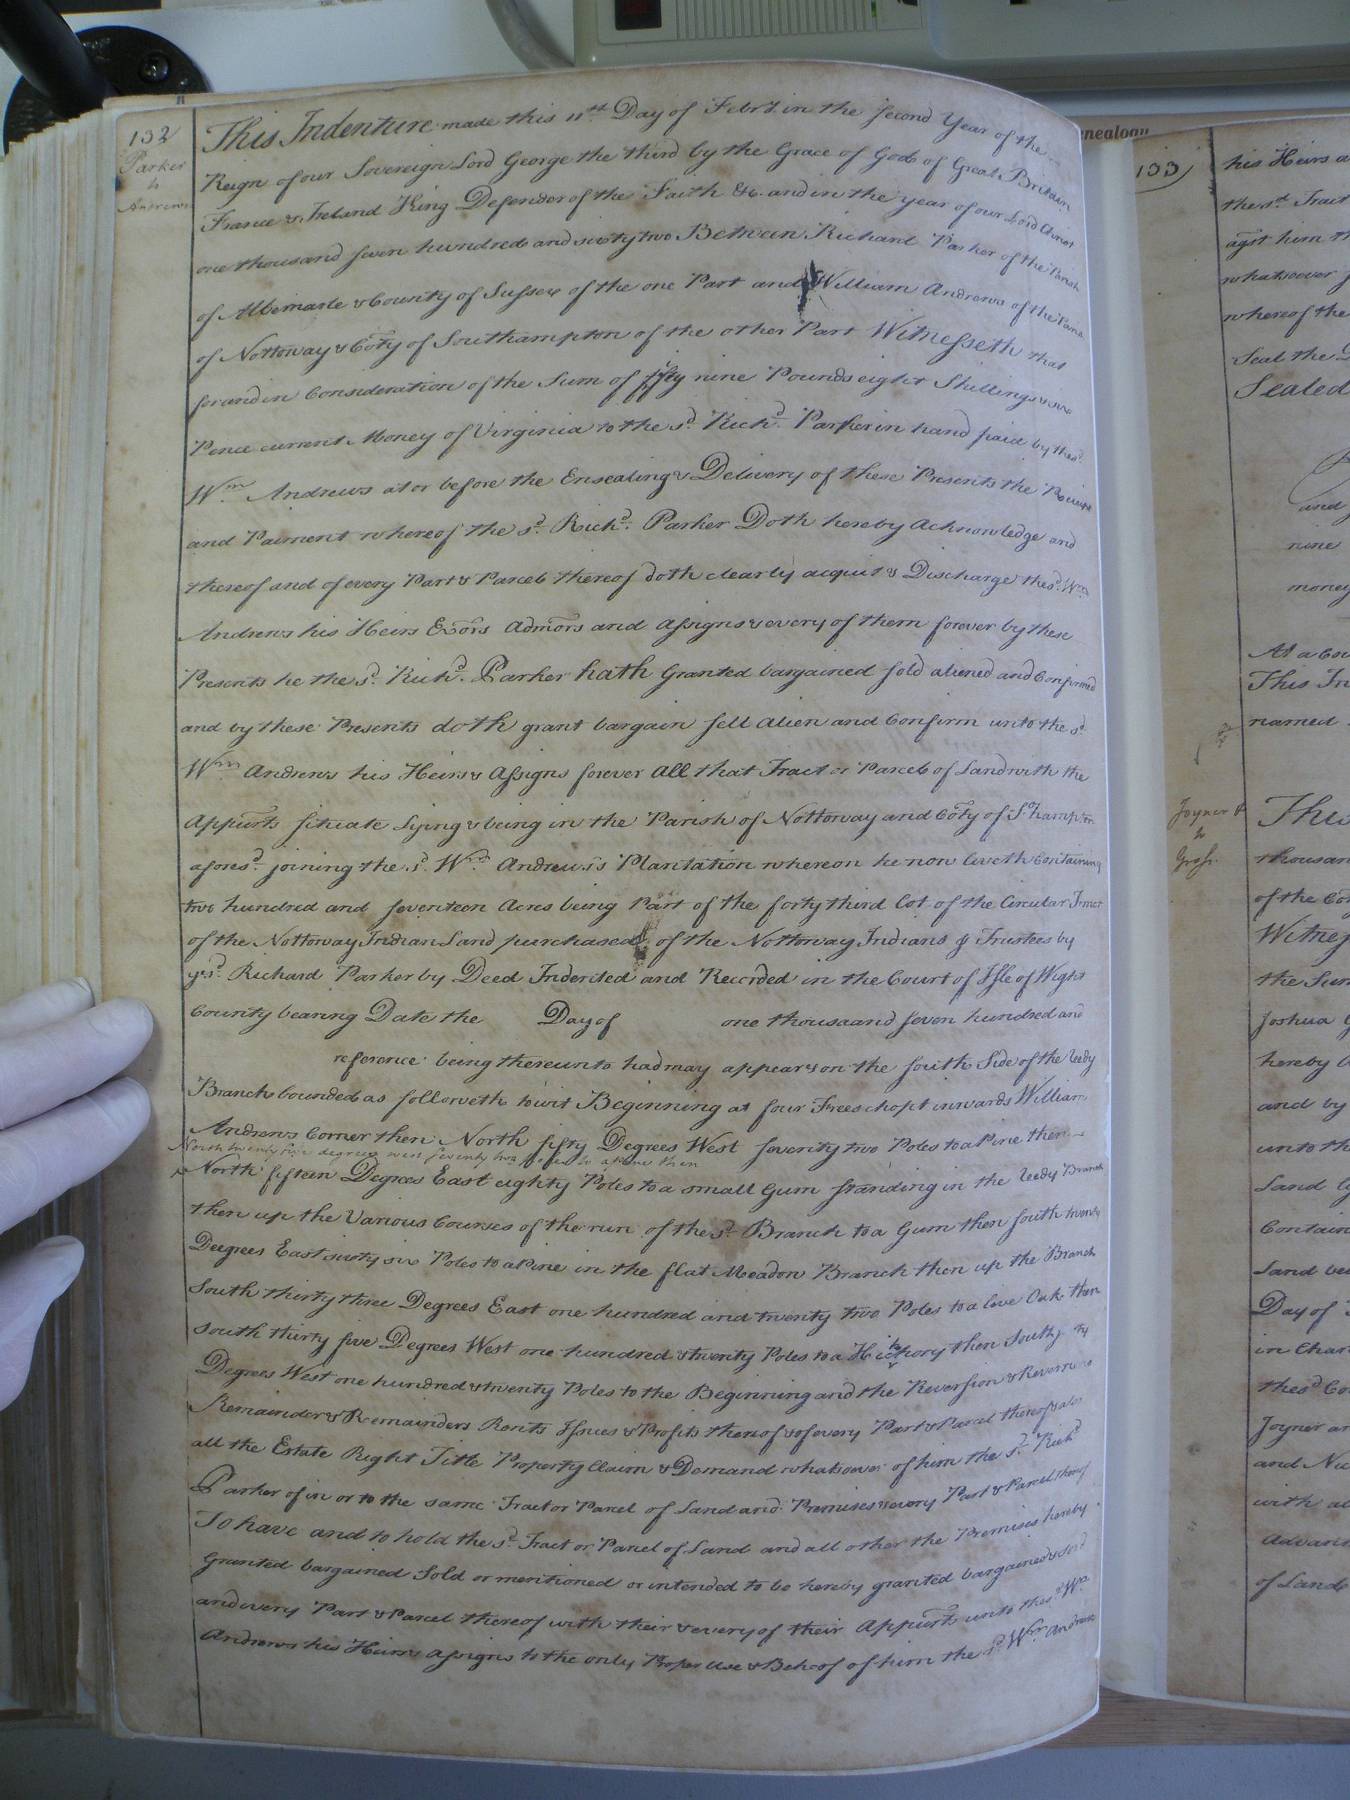 132
Parker
to
Andrews
This Indenture made this 11th Day of Febry in the Second Year of the
Reign of our Sovereign Lord George the third by the Grace of God of Great Britain
France & Ireland King Defendor of the Faith &c. and in the year of our Lord Christ
one thousand seven hundred and sixty two Between Richard Parker of the Parish
of Albemarle & County of Sussex of the one Part and William Andrews of the Parish
of Nottoway & Coty of Southampton of the other Part Witnesseth that
for and in Consideration of the Sum of fifty nine Pounds eight Shillings & six
Pence current Money of Virginia to the sd. Richd. Parker in hand paid by the sd.
Wm Andrews at or before the Ensealing & Delivery of these Presents the Receipt
and Paiment whereof the sd. Richd. Parker Doth hereby Acknowledge and
thereof and of every Part & Parcel thereof doth clearly acquit & Discharge the sd. Wm
Andrews his Heirs Exors Admors and Assigns & every of them forever by these
Presents he the sd. Richd. Parker hath Granted bargained sold aliened and Confirmed
and by these Presents doth grant bargain sell alien and Confirm unto the sd.
Wm Andrews his Heirs & Assigns forever all that Tract or Parcel of Land with the
Appurts situate Lying & being in the Parish of Nottoway and Coty of So.hampton
aforesd. joining the sd. Wm. Andrews's Plantation whereon he now liveth Containing
two hundred and seventeen Acres being Part of the forty third Lot of the Circular Tract
of the Nottoway Indian Land purchased of the Nottoway Indians & Trustees by
ye sd. Richard Parker by Deed Indented and Recorded in the Court of Isle of Wight
County bearing Date the Day of one thousaand seven hundred and
reference being thereunto had may appear & on the south Side of the Reedy
Branch bounded as followeth towit Beginning at four Trees chopt inwards William
Andrews Corner then North fifty Degrees West seventy two Poles to a Pine then
North twenty five degrees west seventy two poles to a pine then
North fifteen Degrees East eighty Poles to a small Gum standing in the Reedy Branch
then up the Various Courses of the run of the sd. Branch to a Gum then south twenty
Degrees East sixty six Poles to a Pine in the flat Meadow Branch then up the Branch
South thirty three Degrees East one hundred and twenty two Poles to a live Oak then
south thirty five Degrees West one hundred & twenty Poles to a Hickory then South
Degrees West one hundred & twenty Poles to the Beginning and the Reversion & Reversions
Remainder & Remainders Rents Issues & Profits thereof & of every Part & Parcel thereof & also
all the Estate Right Title Property Claim & Demand whatsoever of him the sd. Richd
Parker of in or to the same Tract or Parcel of Land and Premises & every Part & Parcel thereof
To have and to hold the sd. Tract or Parcel of Land and all other the Premises hereby
Granted bargained Sold or mentioned or intended to be hereby granted bargained & sold
and every Part & Parcel thereof with their & every of their Appurts unto the sd. Wm
Andrews his Heirs & Assigns to the only Proper Use & Behoof of him the sd. Wm Andrews
enealogy
133
his Heirs a
the sd. Tract
agst him th
whatsoever
whereof the
Seal the
Sealed
and
nine
money
At a Cou
This In
named
Joyner &
to
Thi
thousan
of the Co
Witness
the Sum
Joshua
hereby
and by
unto th
Land
Contain
Land
Day of
in Char
the sd Co
Joyner an
and
with al
Advan
of Land